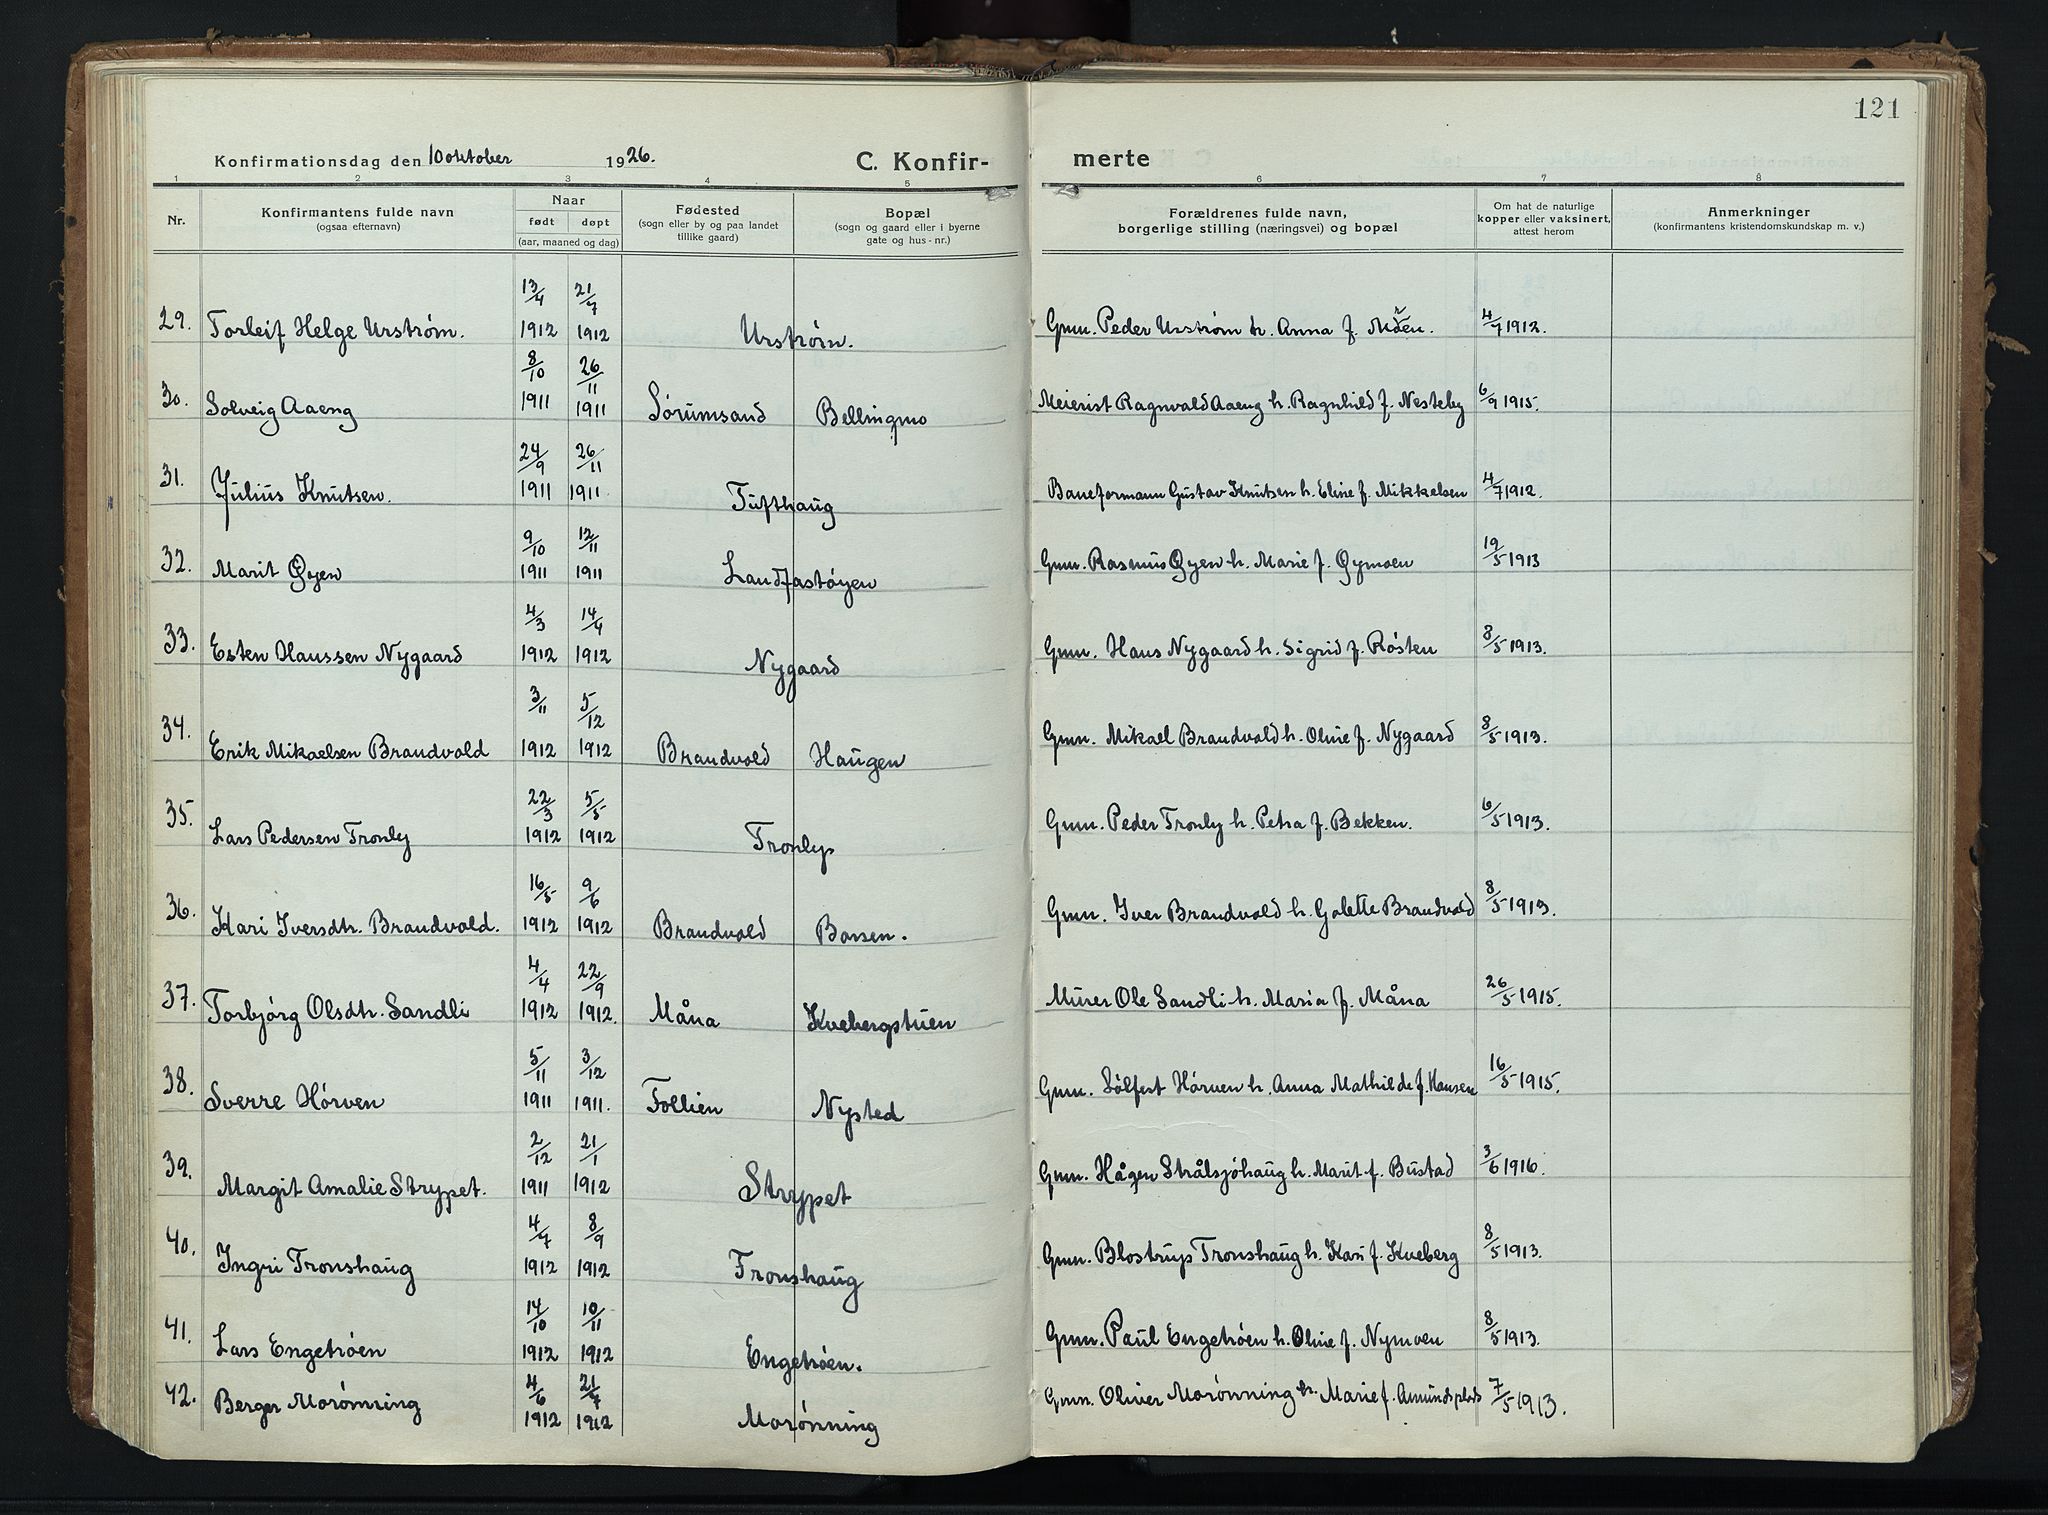 121
Konfirmationsdag den 10 oktober 1926. C. Konfir- merte
1 2 3 4 5 6 7 8
Nr. Konfirmantens fulde navn (ogsaa efternavn) Naar født døpt (aar, maaned og dag) Fødested (sogn eller by og paa landet tillike gaard) Bopæl (sogn og gaard eller i byerne gate og hus-nr.) Forældrenes fulde navn, borgerlige stilling (næringsvei) og bopæl Om hat de naturlige kopper eller vaksinert, attest herom Anmerkninger (konfirmantens kristendomskundskap m. v.)
29. Torleif Helge Urstrøm. 13/4 1912 21/7 1912 Urstrøm. Gmn. Peder Urstrøm h. Anna f. Moen. 4/7 1912.
30. Solveig Aaeng 8/10 1911 26/11 1911 Sørumsand Bellingmo Meierist Ragnvald Aaeng h. Ragnhild f. Nesteby 6/9 1915.
31. Julius Knutsen. 24/9 1911 26/11 1911. Tufthaug Baneformann Gustav Knutsen h. Eline f. Mikkelsen 4/7 1912.
32. Marit Øyen 9/10 1911 12/11 1911 Landfastøyen Gmn. Rasmus Øyen h. Marie f. Øymoen 19/5 1913
33. Esten Hanssen Nygaard 4/3 1912 14/4 1912 Nygaard Gmn. Hans Nygaard h. Sigrid f. Røsten 8/5 1913.
34. Erik Mikaelsen Brandvold 3/11 1912 5/12 1912 Brandvold Haugen Gmn. Mikael Brandvold h. Oline f. Nygaard 8/5 1913.
35. Lars Pedersen Tronly 22/3 1912 5/5 1912 Tronly Gmn. Peder Tronly h. Petra f. Bekken. 6/5 1913.
36. Kari Iversdtr. Brandvold. 16/5 1912 9/6 1912 Brandvold Borsen. Gmn. Iver Brandvold h. Golette Brandvold 8/5 1913.
37. Torbjørg Olsdtr. Sandli 4/4 1912 22/9 1912. Måna Kvebergstuen Murer Ole Sandli h. Maria f. Måna 26/5 1915.
38. Sverre Hørven 5/11 1911 3/12 1911. Follien Nysted Gmn. Sølfest Hørven h. Anna Mathilde f. Hansen 16/5 1915.
39. Margit Amalie Strypet. 2/12 1911 21/1 1912 Strypet Gmn. Hågen Strålsjøhaug h. Marit f. Bustad 3/6 1916.
40. Ingri Tronshaug 4/7 1912 8/9 1912 Tronshaug Gmn. Blostrup Tronshaug h. Kari f. Kveberg 8/5 1913.
41. Lars Engetrøen 14/10 1912 10/11 1912 Engetrøen. Gmn. Paul Engetrøen h. Oline f. Nymoen 8/5 1913.
42. Berger Morønning 4/6 1912 21/7 1912 Morønning Gmn. Oliver Morønning h. Marie f. Amundsplads 7/5 1913.